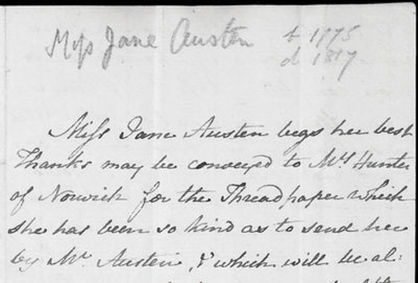 Miss Jane Austen b 1775
d 1817
Miss Jane Austen begs her best
Thanks may be conveyed to Mrs Hunter
of Norwich for the Threadpaper which
she has been so kind as to send her
by Mr. Austen, & which will be al: